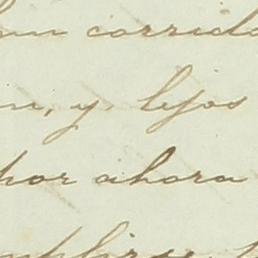 han corrido
n, y, lejos
por ahora